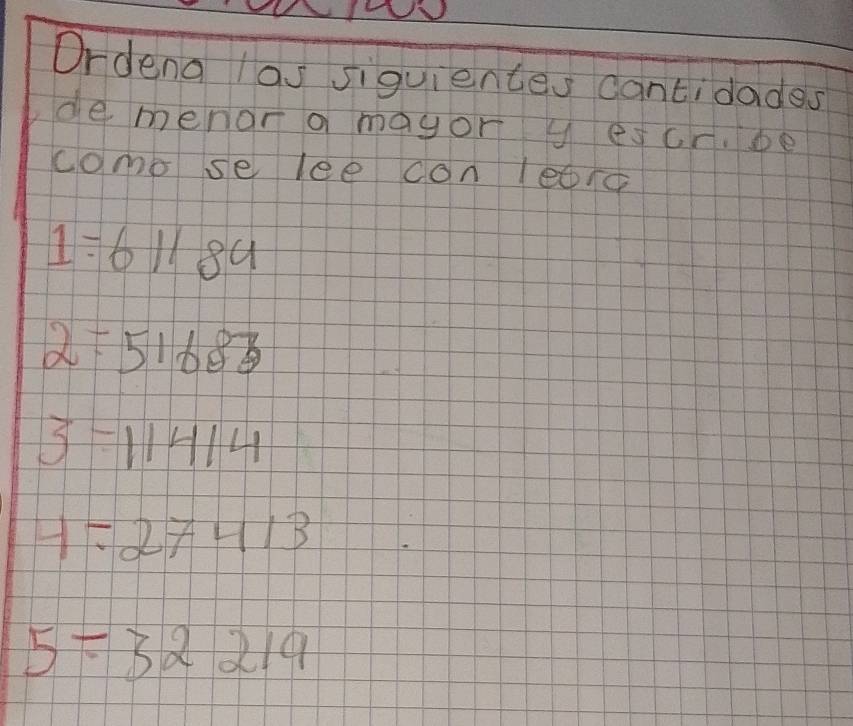 Ordena las siguientes cantidades
de menor a mayor y escribe
como se lee con letra
1=61184
2=51683
3=11414
4=27413
5=32219